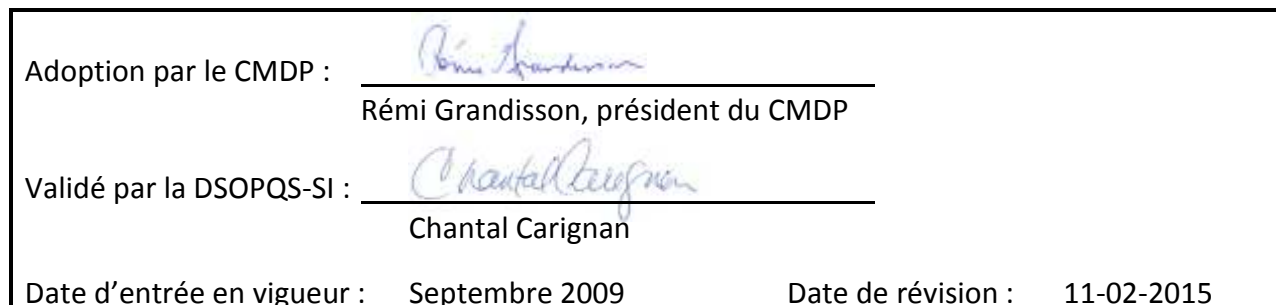 Adoption par le CMDP : Rémi Grandisson
Rémi Grandisson, président du CMDP
Validé par la DSOPQS-SI : Chantal Carignan
Chantal Carignan
Date d’entrée en vigueur : Septembre 2009 Date de révision : 11-02-2015